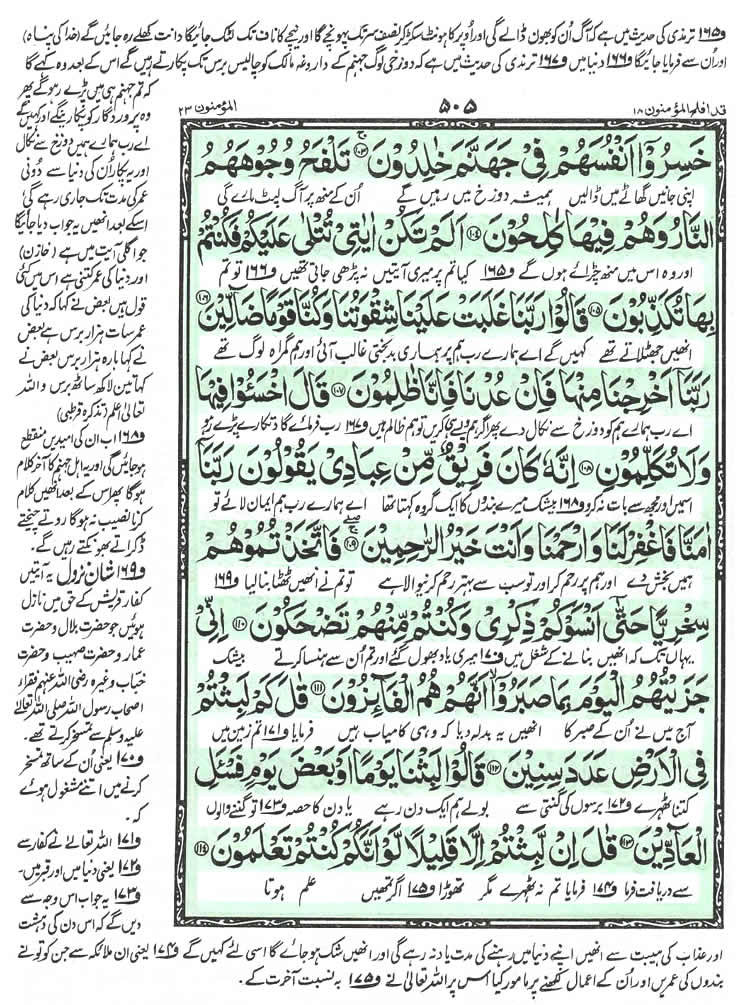 و۱۶۵ ترمذی کی حدیث میں ہے کہ آگ اُن کو بھون ڈالے گی اور اُوپر کا ہونٹ سکڑ کر نصف سر تک پہونچے گا اور نیچے کا ناف تک لٹک جائیگا دانت کھلے رہ جائیں گے (خدا کی پناہ)
اور اُن سے فرمایا جائیگا و۱۶۶ دنیا میں و۱۶۷ ترمذی کی حدیث میں ہے کہ دوزخی لوگ جہنم کے داروغہ مالک کو چالیس برس تک پکارتے رہیں گے اس کے بعد وہ کہے گا
کہ تم جہنم ہی میں پڑے رہو گے پھر
وہ پروردگار کو پکارینگے اور کہیں گے
اے رب ہمارے ہمیں دوزخ سے نکال
اور یہ پکار اُن کی دنیا سے دُونی
عمر کی مدت تک جاری رہے گی
اسکے بعد انھیں یہ جواب دیا جائیگا
جو اگلی آیت میں ہے (خازن)
اور دنیا کی عمر کتنی ہے اس میں کئی
قول ہیں بعض نے کہا کہ دنیا کی
عمر سات ہزار برس ہے بعض
نے کہا بارہ ہزار برس بعض نے
کہا تین لاکھ ساٹھ برس واللہ
تعالیٰ اعلم (تذکرہ قرطبی)
و۱۶۸ اب ان کی امیدیں منقطع
ہو جائیں گی اور یہ اہل جہنم کا آخر کلام
ہوگا پھر اس کے بعد انھیں کلام
کرنا نصیب نہ ہوگا روتے چیختے
ڈکراتے بھونکتے رہیں گے۔
و۱۶۹ شان نزول یہ آیتیں
کفار قریش کے حق میں نازل
ہوئیں جو حضرت بلال و حضرت
عمار و حضرت صہیب و حضرت
خباب وغیرہ رضی اللہ عنہم فقراء
اصحاب رسول اللہ صلی اللہ تعالیٰ
علیہ وسلم سے تمسخر کرتے تھے۔
و۱۷۰ یعنی اُن کے ساتھ تمسخر
کرنے میں اتنے مشغول ہوئے
کہ۔
و۱۷۱ اللہ تعالیٰ نے کفار سے
و۱۷۲ یعنی دنیا میں اور قبر میں۔
و۱۷۳ یہ جواب اس وجہ سے
دیں گے کہ اس دن کی دہشت
قد افلح المؤمنون ۱۸ ۵۰۵ المؤمنون ۲۳
خَسِرُوْۤا اَنْفُسَهُمْ فِیْ جَهَنَّمَ خٰلِدُوْنَ ۱۰۳ تَلْفَحُ وُجُوْهَهُمُ
اپنی جانیں گھاٹے میں ڈالیں ہمیشہ دوزخ میں رہیں گے اُن کے منھ پر آگ لپٹ مارے گی
النَّارُ وَهُمْ فِیْهَا كٰلِحُوْنَ ۱۰۴ اَلَمْ تَكُنْ اٰیٰتِیْ تُتْلٰى عَلَیْكُمْ فَكُنْتُمْ
اور وہ اس میں منھ چڑائے ہوں گے و۱۶۵ کیا تم پر میری آیتیں نہ پڑھی جاتی تھیں و۱۶۶ تو تم
بِهَا تُكَذِّبُوْنَ ۱۰۵ قَالُوْا رَبَّنَا غَلَبَتْ عَلَیْنَا شِقْوَتُنَا وَكُنَّا قَوْمًا ضَآلِّیْنَ ۱۰۶
انھیں جھٹلاتے تھے کہیں گے اے ہمارے رب ہم پر ہماری بدبختی غالب آئی اور ہم گمراہ لوگ تھے
رَبَّنَاۤ اَخْرِجْنَا مِنْهَا فَاِنْ عُدْنَا فَاِنَّا ظٰلِمُوْنَ ۱۰۷ قَالَ اخْسَـُٔوْا فِیْهَا
اے رب ہمارے ہم کو دوزخ سے نکال دے پھر اگر ہم ویسے ہی کریں تو ہم ظالم ہیں و۱۶۷ رب فرمائے گا دتکارے پڑے رہو
وَلَا تُكَلِّمُوْنِ ۱۰۸ اِنَّهٗ كَانَ فَرِیْقٌ مِّنْ عِبَادِیْ یَقُوْلُوْنَ رَبَّنَاۤ
اس میں اور مجھ سے بات نہ کرو و۱۶۸ بیشک میرے بندوں کا ایک گروہ کہتا تھا اے ہمارے رب ہم ایمان لائے تو
اٰمَنَّا فَاغْفِرْ لَنَا وَارْحَمْنَا وَاَنْتَ خَیْرُ الرّٰحِمِیْنَ ۱۰۹ فَاتَّخَذْتُمُوْهُمْ
ہمیں بخش دے اور ہم پر رحم کر اور تو سب سے بہتر رحم کرنیوالا ہے تو تم نے انھیں ٹھٹھا بنا لیا و۱۶۹
سِخْرِیًّا حَتّٰۤى اَنْسَوْكُمْ ذِكْرِیْ وَكُنْتُمْ مِّنْهُمْ تَضْحَكُوْنَ ۱۱۰ اِنِّیْ
یہاں تک کہ انھیں بنانے کے شغل میں و۱۷۰ میری یاد بھول گئے اور تم اُن سے ہنسا کرتے بیشک
جَزَیْتُهُمُ الْیَوْمَ بِمَا صَبَرُوْۤا اَنَّهُمْ هُمُ الْفَآىِٕزُوْنَ ۱۱۱ قٰلَ كَمْ لَبِثْتُمْ
آج میں نے اُن کے صبر کا انھیں یہ بدلہ دیا کہ وہی کامیاب ہیں فرمایا و۱۷۱ تم زمین میں
فِی الْاَرْضِ عَدَدَ سِنِیْنَ ۱۱۲ قَالُوْا لَبِثْنَا یَوْمًا اَوْ بَعْضَ یَوْمٍ فَسْـَٔلِ
کتنا ٹھہرے و۱۷۲ برسوں کی گنتی سے بولے ہم ایک دن رہے یا دن کا حصہ و۱۷۳ تو گننے والوں
الْعَآدِّیْنَ ۱۱۳ قٰلَ اِنْ لَّبِثْتُمْ اِلَّا قَلِیْلًا لَّوْ اَنَّكُمْ كُنْتُمْ تَعْلَمُوْنَ ۱۱۴
سے دریافت فرما و۱۷۴ فرمایا تم نہ ٹھہرے مگر تھوڑا و۱۷۵ اگر تمھیں علم ہوتا
اور عذاب کی ہیبت سے انھیں اپنے دنیا میں رہنے کی مدت یاد نہ رہے گی اور انھیں شک ہو جائے گا اسی لئے کہیں گے و۱۷۴ یعنی ان ملائکہ سے جن کو تو نے
بندوں کی عمریں اور اُن کے اعمال لکھنے پر مامور کیا اس پر اللہ تعالیٰ نے و۱۷۵ بہ نسبت آخرت کے۔